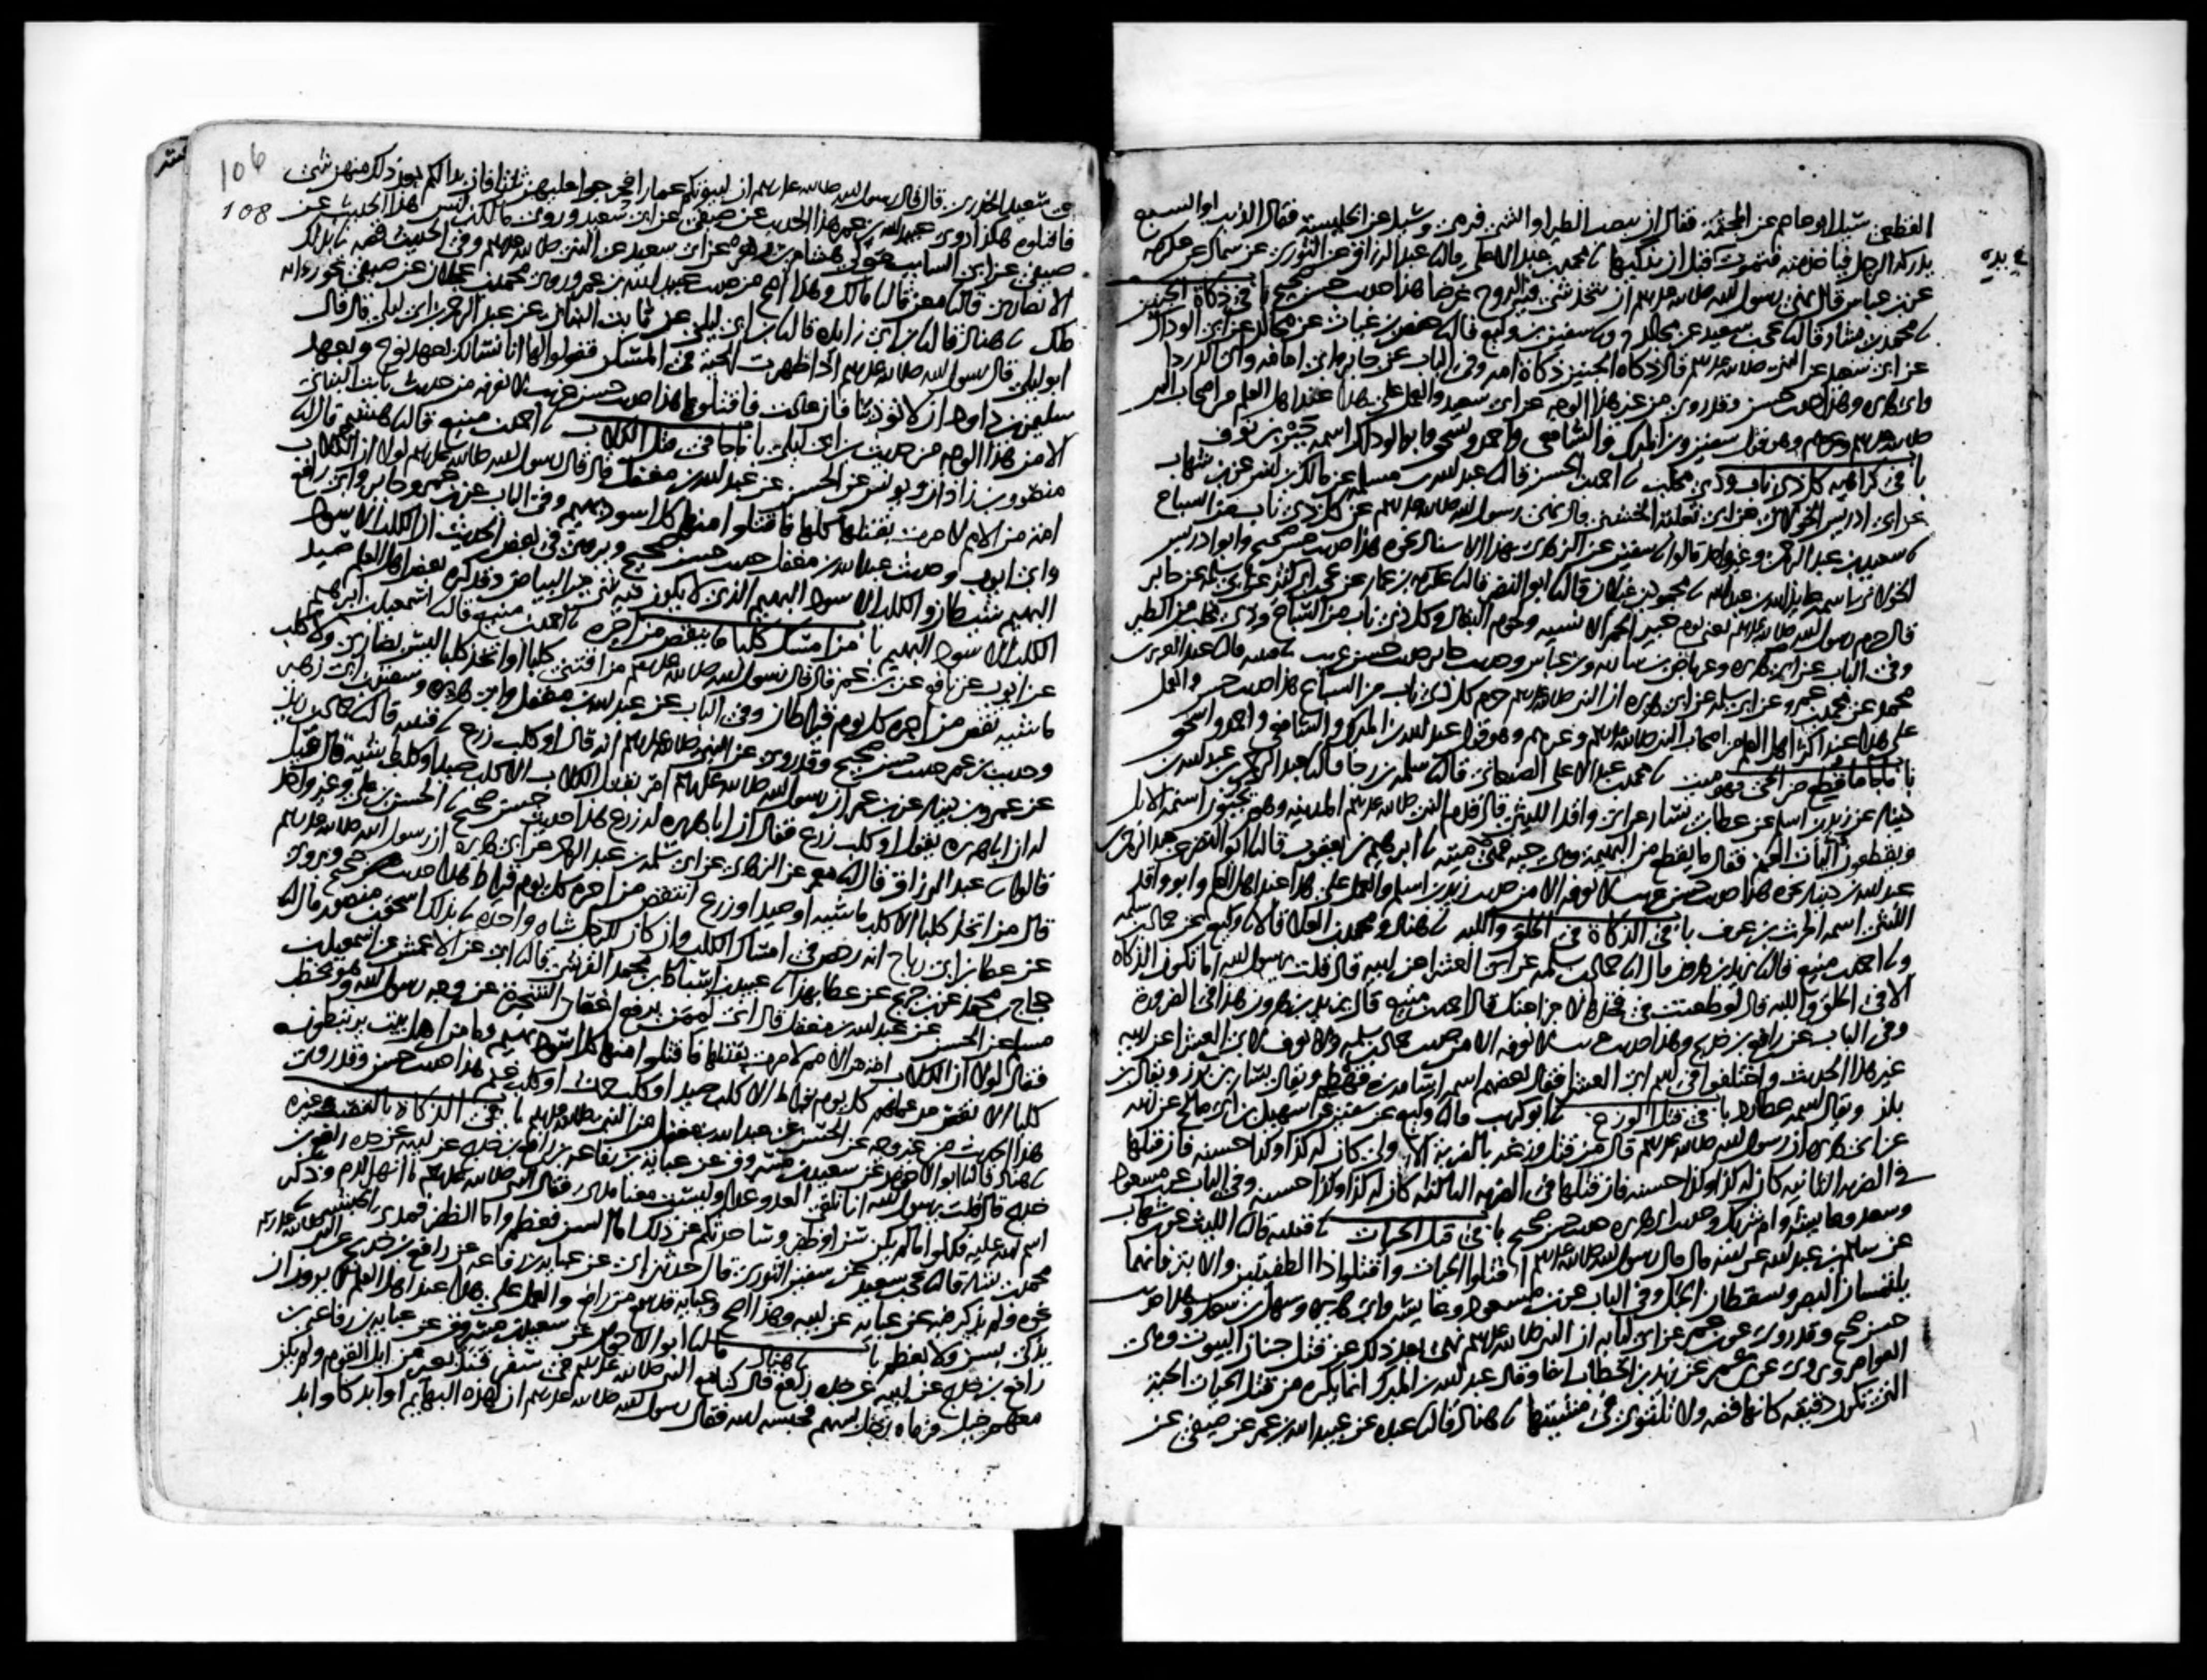 القطعي سئل ابو عاصم عن المجثمة فقال ان ينصب الطير او الشئ فيرمى وسئل عن الخليسة فقال الذئب او السبع
يدركه الرجل فياخذ منه فتموت قبل ان يذكيها محمد بن عبد الاعلى قال عبد الرزاق عن الثوري عن سماك عن عكرمة
في يده
عن بن عباس قال نهى رسول الله صلى الله عليه وسلم ان يتخذ شئ فيه الروح غرضا هذا حديث حسن صحيح با في ذكاة الجنين
محمد بن بشار قال يحيى بن سعيد عن مجالد وسفين بن وكيع قال حفص بن غياث عن مجالد عن ابي الوداك
عن ابي سعيد عن النبي صلى الله عليه وسلم قال ذكاة الجنين ذكاة امه وفي الباب عن جابر وابي امامة وابي الدردا
وابي هريرة وهذا حديث حسن وقد روي من غير هذا الوجه عن ابي سعيد والعمل على هذا عند اهل العلم من اصحاب النبي
صلى الله عليه وسلم وغيرهم وهو قول سفين وبن المبرك والشافعي واحمد واسحق وابو الوداك اسمه جبر بن نوف
با في كراهية كل ذي ناب وذي مخلب احمد بن الحسن قال عبد الله بن مسلمة عن مالك بن انس عن بن شهاب
عن ابي ادريس الخولاني عن ابي ثعلبة الخشني قال نهى رسول الله صلى الله عليه وسلم عن كل ذي ناب من السباع
سعيد بن عبد الرحمن وغير واحد قالوا سفين عن الزهري بهذا الاسناد نحوه هذا حديث حسن صحيح وابو ادريس
الخولاني اسمه عايذ الله بن عبد الله محمود بن غيلان قال ابو النضر قال عكرمة بن عمار عن يحيى بن ابي كثير عن ابي سلمة عن جابر
قال حرم رسول الله صلى الله عليه وسلم يعني يوم خيبر الحمر الانسية ولحوم البغال وكل ذي ناب من السباع وذي مخلب من الطير
وفي الباب عن ابي هريرة وعرباض بن سارية وبن عباس وحديث جابر حديث حسن غريب قتيبة قال عبد العزيز بن
محمد عن محمد بن عمرو عن ابي سلمة عن ابي هريرة ان النبي صلى الله عليه وسلم حرم كل ذي ناب من السباع هذا حديث حسن والعمل
على هذا عند اكثر اهل العلم من اصحاب النبي صلى الله عليه وسلم وغيرهم وهو قول عبد الله بن المبرك والشافعي واحمد واسحق
با ما جا ما قطع من الحي فهو ميت محمد بن عبد الاعلى الصنعاني قال سلمة بن رجا قال عبد الرحمن بن عبد الله بن
دينار عن زيد بن اسلم عن عطا بن يسار عن ابي واقد الليثي قال قدم النبي صلى الله عليه وسلم المدينة وهم يجبون اسنمة الابل
ويقطعون اليات الغنم فقال ما يقطع من البهيمة وهي حية فهي ميتة ابرهيم بن يعقوب قال ابو النضر عن عبد الرحمن بن
عبد الله بن دينار نحوه هذا حديث حسن غريب لا نعرفه الا من حديث زيد بن اسلم والعمل على هذا عند اهل العلم وابو واقد
الليثي اسمه الحرث بن عوف با في الذكاة في الحلق واللبة هناد ومحمد بن العلا قالا وكيع عن حماد بن سلمة
واحمد بن منيع قال يزيد بن هرون قال حماد بن سلمة عن ابي العشرا عن ابيه قال قلت يرسول الله اما تكون الذكاة
الا في الحلق واللبة قال لو طعنت في فخذها لاجزا عنك قال احمد بن منيع قال يزيد بن هرون هذا في الضرورة
وفي الباب عن رافع بن خديج وهذا حديث غريب لا نعرفه الا من حديث حماد بن سلمة ولا نعرف لابي العشرا عن ابيه
غير هذا الحديث واختلفوا في اسم ابي العشرا فقال بعضهم اسمه اسامة بن قهطم ويقال يسار بن برز ويقال بن
بلز ويقال اسمه عطارد با في قتل الوزغ ابو كريب قال وكيع عن سفين عن سهيل بن ابي صالح عن ابيه
عن ابي هريرة ان رسول الله صلى الله عليه وسلم قال من قتل وزغة بالضربة الاولى كان له كذا وكذا حسنة فان قتلها
في الضربة الثانية كان له كذا وكذا حسنة فان قتلها في الضربة الثالثة كان له كذا وكذا حسنة وفي الباب عن بن مسعود
وسعد وعايشة وام شريك وحديث ابي هريرة حديث حسن صحيح با في قتل الحيات قتيبة قال الليث عن بن شهاب
عن سالم بن عبد الله عن ابيه قال قال رسول الله صلى الله عليه وسلم اقتلوا الحيات واقتلوا ذا الطفيتين والابتر فانهما
يلتمسان البصر ويسقطان الحبل وفي الباب عن بن مسعود وعايشة وابي هريرة وسهل بن سعد وهذا حديث
حسن صحيح وقد روي عن بن عمر عن ابي لبابة ان النبي صلى الله عليه وسلم نهى بعد ذلك عن قتل جنان البيوت وهي
العوامر ويروى عن بن عمر عن زيد بن الخطاب ايضا وقال عبد الله بن المبرك انما يكره من قتل الحيات الحية
التي تكون دقيقة كانها فضة ولا تلتوي في مشيتها هناد قال عبدة عن عبيد الله بن عمر عن صيفي عن
106
108
ابي سعيد الخدري قال قال رسول الله صلى الله عليه وسلم ان لبيوتكم عمارا فحرجوا عليهن ثلثا فان بدا لكم بعد ذلك منهن شئ
فاقتلوه هكذا روى عبيد الله بن عمر هذا الحديث عن صيفي عن ابي سعيد وروى مالك بن انس هذا الحديث عن
صيفي عن ابي السايب مولى هشام بن زهرة عن ابي سعيد عن النبي صلى الله عليه وسلم وفي الحديث قصة بذلك
الانصاري قال معن قال مالك وهذا اصح من حديث عبيد الله بن عمر وروى محمد بن عجلان عن صيفي نحو رواية
ملك هناد قال بن ابي زايدة قال بن ابي ليلى عن ثابت البناني عن عبد الرحمن بن ابي ليلى قال قال
ابو ليلى قال رسول الله صلى الله عليه وسلم اذا ظهرت الحية في المسكن فقولوا لها انا نسالك بعهد نوح وبعهد
سليمن بن داود ان لا تؤذينا فان عادت فاقتلوها هذا حديث حسن غريب لا نعرفه من حديث ثابت البناني
الا من هذا الوجه من حديث بن ابي ليلى با ما جا في قتل الكلاب احمد بن منيع قال هشيم قال
منصور بن زاذان ويونس عن الحسن عن عبد الله بن مغفل قال قال رسول الله صلى الله عليه وسلم لولا ان الكلاب
امة من الامم لامرت بقتلها كلها فاقتلوا منها كل اسود بهيم وفي الباب عن بن عمر وجابر وابي رافع
وابي ايوب وحديث عبد الله بن مغفل حديث حسن صحيح ويروى في بعض الحديث ان الكلب الاسود
البهيم شيطان والكلب الاسود البهيم الذي لا يكون فيه شئ من البياض وقد كره بعض اهل العلم صيد
الكلب الاسود البهيم با من امسك كلبا ما ينقص من اجره احمد بن منيع قال اسمعيل بن ابرهيم
عن ايوب عن نافع عن بن عمر قال قال رسول الله صلى الله عليه وسلم من اقتنى كلبا او اتخذ كلبا ليس بضاري ولا كلب
ماشية نقص من اجره كل يوم قيراطان وفي الباب عن عبد الله بن مغفل وابي هريرة وسفين بن ابي زهير
وحديث بن عمر حديث حسن صحيح وقد روي عن النبي صلى الله عليه وسلم انه قال او كلب زرع قتيبة قال حماد بن زيد
عن عمرو بن دينار عن بن عمر ان رسول الله صلى الله عليه وسلم امر بقتل الكلاب الا كلب صيد او كلب ماشية قال قيل
له ان ابا هريرة يقول او كلب زرع فقال ان ابا هريرة له زرع هذا حديث حسن صحيح الحسن بن علي وغير واحد
قالوا عبد الرزاق قال معمر عن الزهري عن ابي سلمة بن عبد الرحمن عن ابي هريرة ان رسول الله صلى الله عليه وسلم
قال من اتخذ كلبا الا كلب ماشية او صيد او زرع انتقص من اجره كل يوم قيراط هذا حديث حسن صحيح ويروى
عن عطا بن ابي رباح انه رخص في امساك الكلب وان كان للرجل شاة واحدة بذلك اسحق بن منصور قال
حجاج بن محمد عن بن جريج عن عطا بهذا عبيد بن اسباط بن محمد القرشي قال ابي عن الاعمش عن اسمعيل بن
مسلم عن الحسن عن عبد الله بن مغفل قال اني لممن يرفع اغصان الشجرة عن وجه رسول الله وهو يخطب
فقال لولا ان الكلاب امة من الامم لامرت بقتلها فاقتلوا منها كل اسود بهيم وما من اهل بيت يرتبطون
كلبا الا نقص من عملهم كل يوم قيراط الا كلب صيد او كلب حرث او كلب غنم هذا حديث حسن وقد روي
هذا الحديث من غير وجه عن الحسن عن عبد الله بن مغفل عن النبي صلى الله عليه وسلم با في الذكاة بالقصب وغيره
هناد قال ابو الاحوص عن سعيد بن مسروق عن عباية بن رفاعة بن رافع بن خديج عن ابيه عن جده رافع بن
خديج قال قلت يرسول الله انا نلقى العدو غدا وليست معنا مدى فقال النبي صلى الله عليه وسلم ما انهر الدم وذكر
اسم الله عليه فكلوا ما لم يكن سنا او ظفر وساحدثكم عن ذلك اما السن فعظم واما الظفر فمدى الحبشة
محمد بن بشار قال يحيى بن سعيد عن سفين الثوري قال حدثني ابي عن عباية بن رفاعة عن رافع بن خديج عن النبي صلى الله عليه وسلم
نحوه ولم يذكر فيه عن عباية عن ابيه وهذا اصح وعباية قد سمع من رافع والعمل على هذا عند اهل العلم لا يرون ان
يذكى بسن ولا بعظم با هناد قال ابو الاحوص عن سعيد بن مسروق عن عباية بن رفاعة بن
رافع بن خديج عن ابيه عن جده رافع قال كنا مع النبي صلى الله عليه وسلم في سفر فند بعير من ابل القوم ولم يكن
معهم خيل فرماه رجل بسهم فحبسه الله فقال رسول الله صلى الله عليه وسلم ان لهذه البهايم اوابد كاوابد